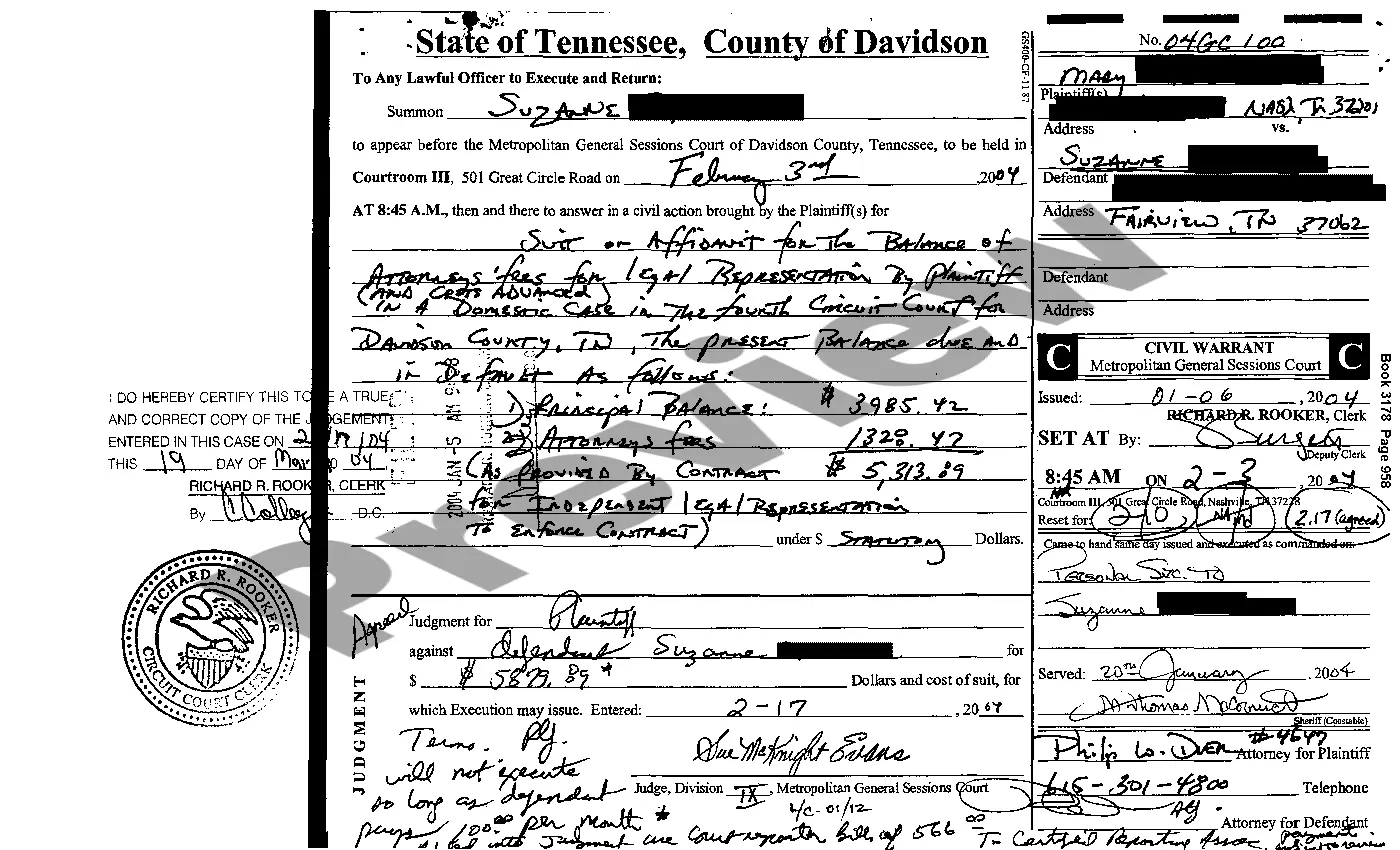 State of Tennessee, County of Davidson
To Any Lawful Officer to Execute and Return:
Summon SUZANNE
to appear before the Metropolitan General Sessions Court of Davidson County, Tennessee, to be held in
Courtroom III, 501 Great Circle Road on February 3rd ,2004
AT 8:45 A.M., then and there to answer in a civil action brought by the Plaintiff(s) for
SUIT or AFFIDAVIT for the BALANCE of
ATTORNEYS' fees for legal REPRESENTATION By Plaintiff
(AND COSTS ADVANCED)
IN A DOMESTIC CASE in The fourth Circuit Court for
DAVIDSON COUNTY, TN, The PRESENT BALANCE due AND
in DEFAULT AS follows:
1) PRINCIPAL BALANCE: $ 3985.42
2) ATTORNEYS fees 1328.47
(AS PROVIDED BY CONTRACT $ 5,313.89
for INDEPENDENT legal REPRESENTATION
TO ENFORCE CONTRACT) under $ STATUTORY Dollars.
2004 JAN -5 AM 9
I DO HEREBY CERTIFY THIS TO BE A TRUE
AND CORRECT COPY OF THE JUDGEMENT
ENTERED IN THIS CASE ON 2/17/04
THIS 19 DAY OF Mar 04
RICHARD R. ROOKER, CLERK
By D.C.
RICHARD R. ROOKER
CIRCUIT COURT CLERK
JUDGMENT
Appeal
Judgment for Plaintiff
against defendant Suzanne for
$ $ 5879.89 * Dollars and cost of suit, for
which Execution may issue. Entered: 2-17 , 2004
Terms. Plf.
will not execute
so long as defendant
pays 100.00 per month
Sue McKnight Evans
Judge, Division IX, Metropolitan General Sessions Court
into Judgment are Court reporter bills of 566 00 To Certified Reporting Assoc.
No. 04GC100
MARY
Plaintiff(s)
NASH Tn 37201
Address
vs.
SUZANNE
Defendant
Address FAIRVIEW, TN 37062
Defendant
Address
C CIVIL WARRANT C
Metropolitan General Sessions Court
Issued: 01-06 , 2004
RICHARD R. ROOKER, Clerk
SET AT By:
Deputy Clerk
8:45 AM ON 2-3 2004
Courtroom III, 501 Great Circle Road, Nashville, TN 37228
Reset for: 2-10, 2.17 (agreed)
Came to hand same day issued and executed as commanded on:
Personal Svc. TO
Suzanne
Served: 20TH January , 2004
Sheriff (Constable)
#4647
Philip W. Duer Attorney for Plaintiff
615-301-4800 Telephone
Attorney for Defendant
Book 3178 Page 958
Preview